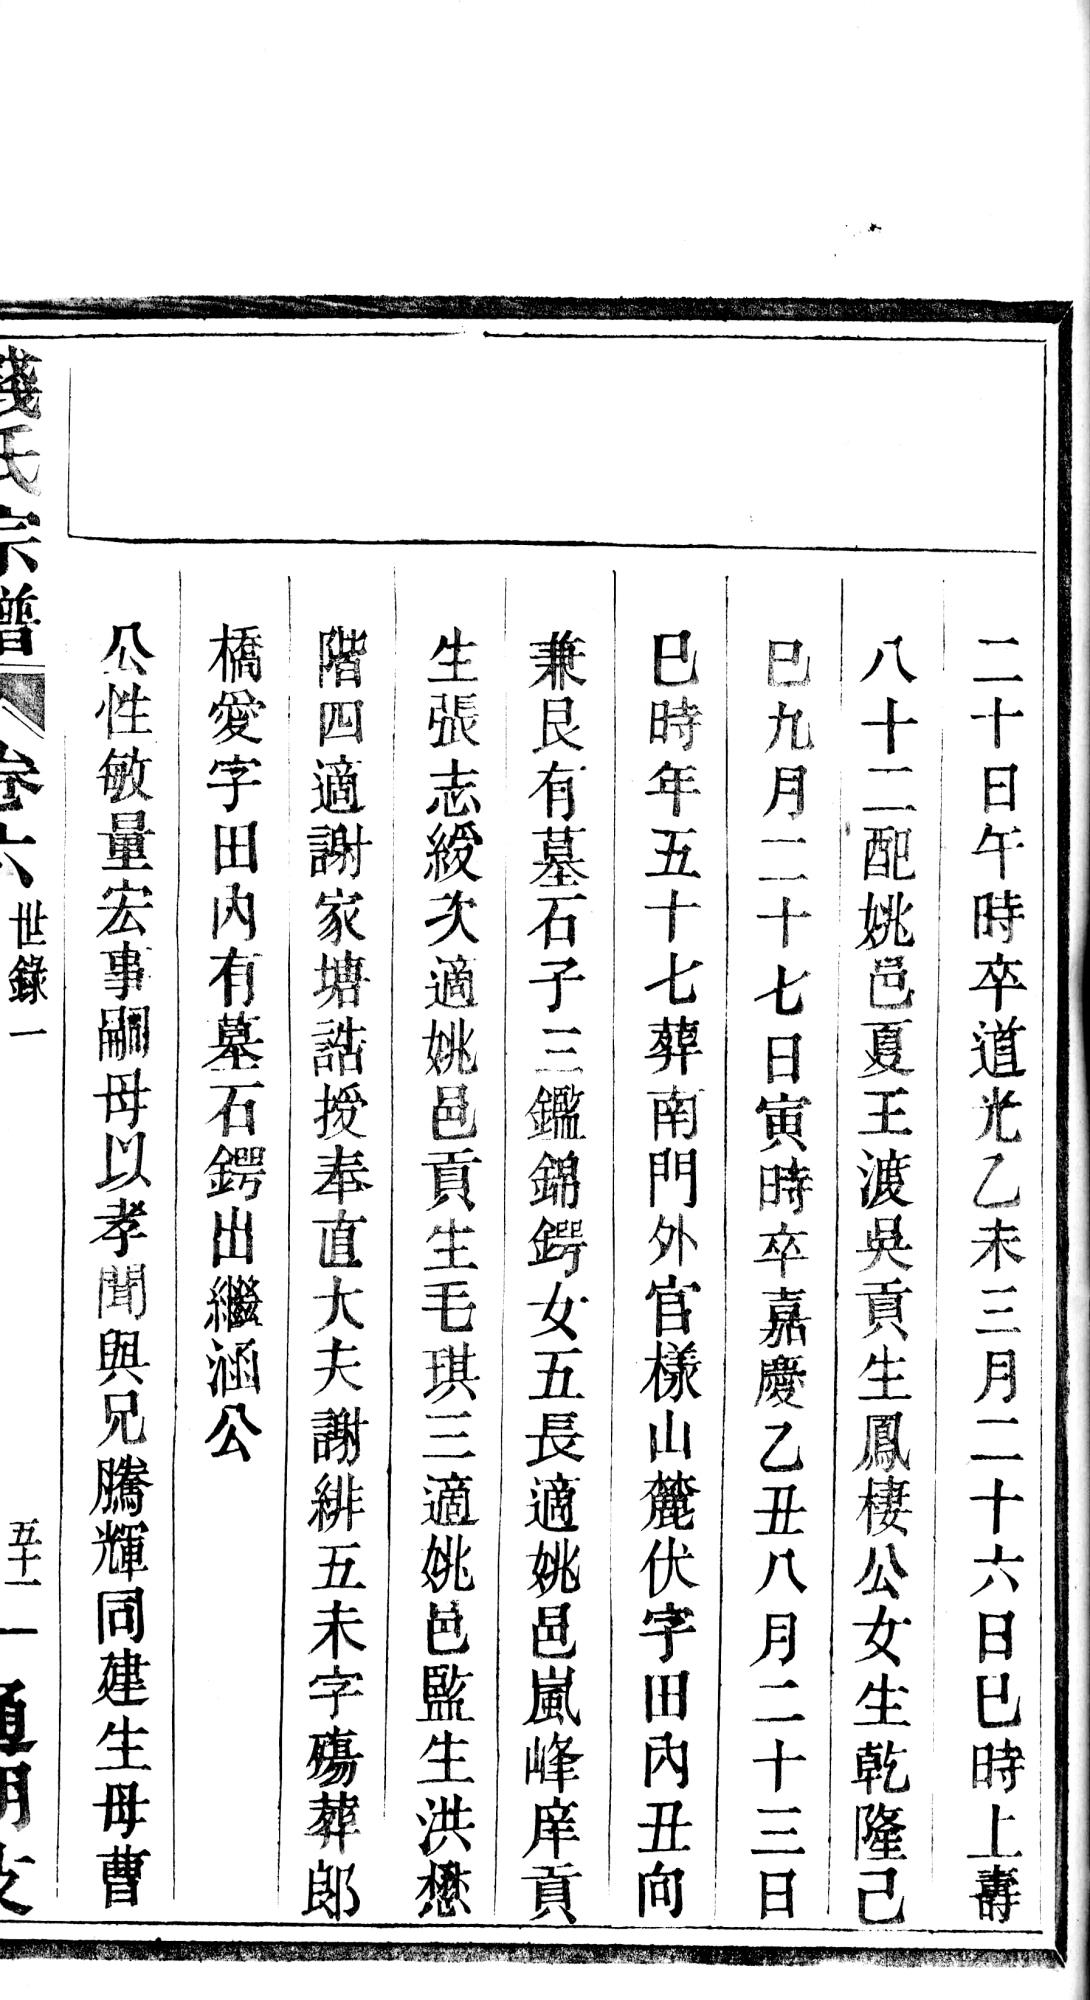 二十日午時卒道光乙未三月二十六日巳時上壽
八十二配姚邑夏王渡吳貢生鳳棲公女生乾隆己
巳九月二十七日寅時卒嘉慶乙丑八月二十三日
巳時年五十七葬南門外官樣山麓伏字田內丑向
兼艮有墓石子三鑑錦鍔女五長適姚邑嵐峰庠貢
生張志綬次適姚邑貢生毛琪三適姚邑監生洪懋
階四適謝家塘誥授奉直大夫謝緋五未字殤葬郎
橋愛字田內有墓石鍔出繼涵公
公性敏量宏事嗣母以孝聞與兄騰輝同建生母曹
錢氏宗譜 卷六 世錄一 五十一 通明支